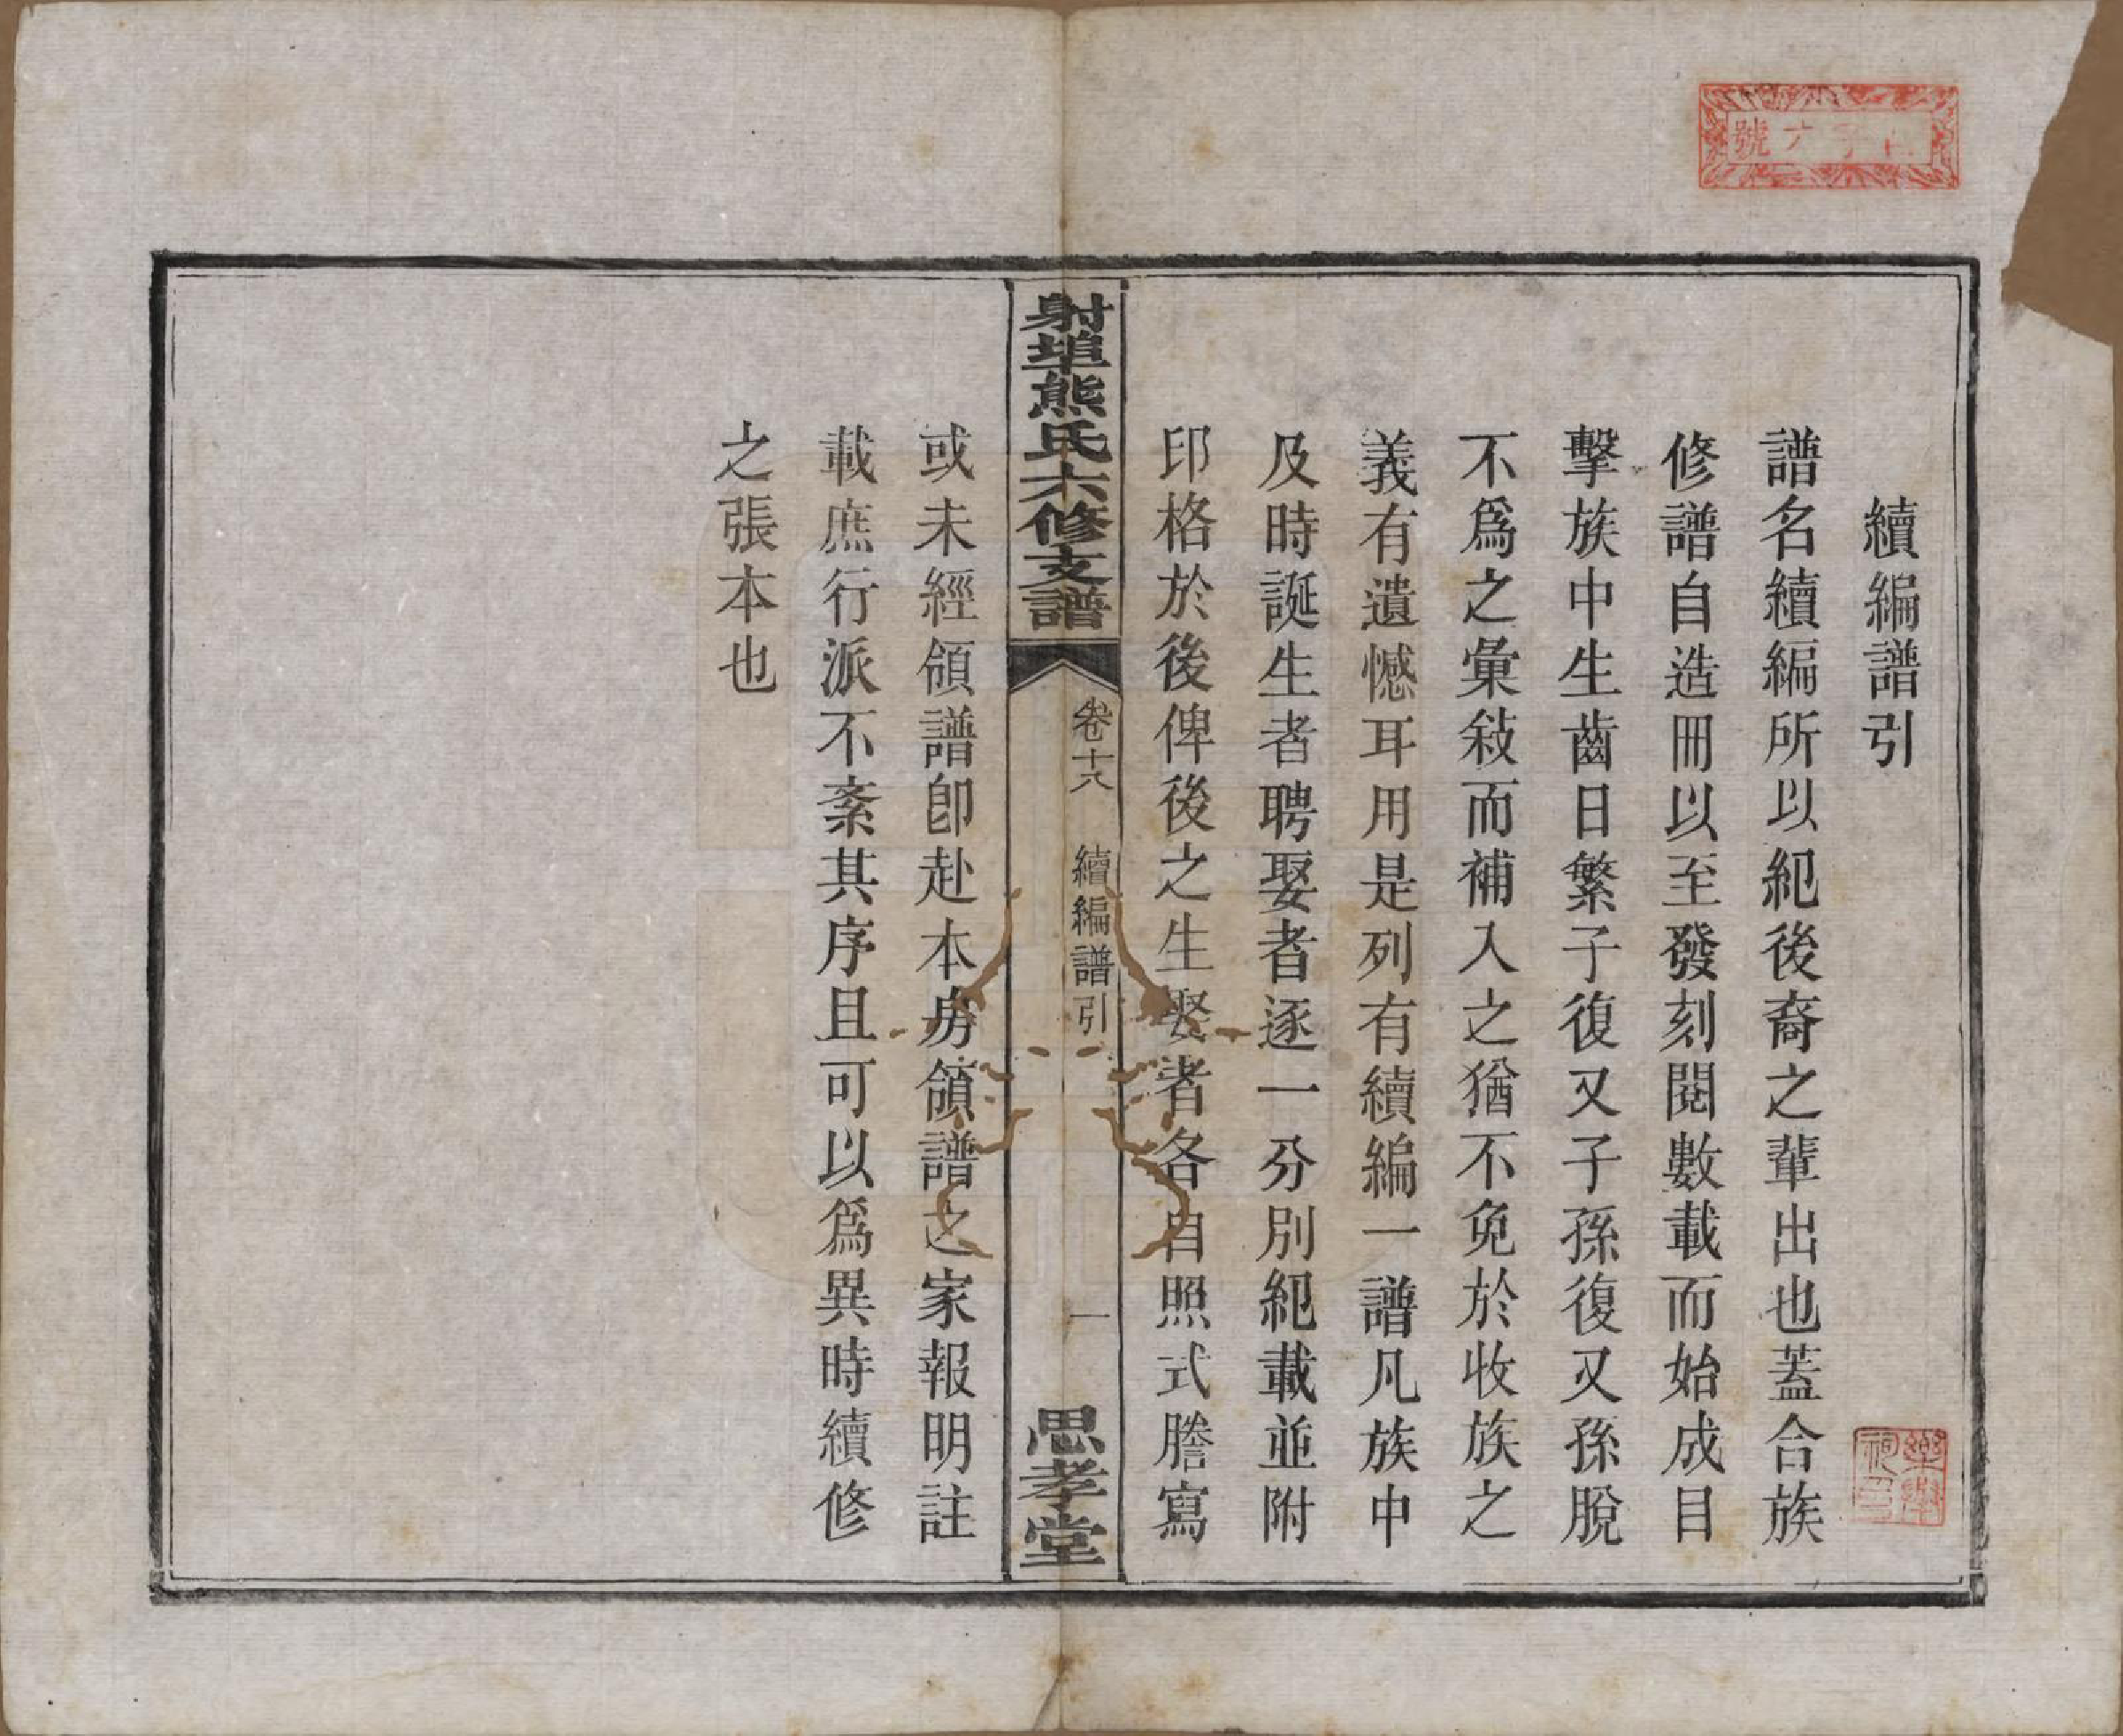 續編譜引
譜名續編所以紀後裔之輩出也葢合族
修譜自造冊以至發刻閱數載而始成目
擊族中生齒日繁子復又子孫復又孫脫
不爲之彙敍而補入之猶不免於收族之
義有遺憾耳用是列有續編一譜凡族中
及時誕生者聘娶者逐一分別紀載並附
印格於後俾後之生娶者各自照式謄寫
射埠熊氏六修支譜
卷十六
續編譜引
一
思孝堂
或未經領譜卽赴本房領譜之家報明註
載庶行派不紊其序且可以爲異時續修
之張本也
字六號